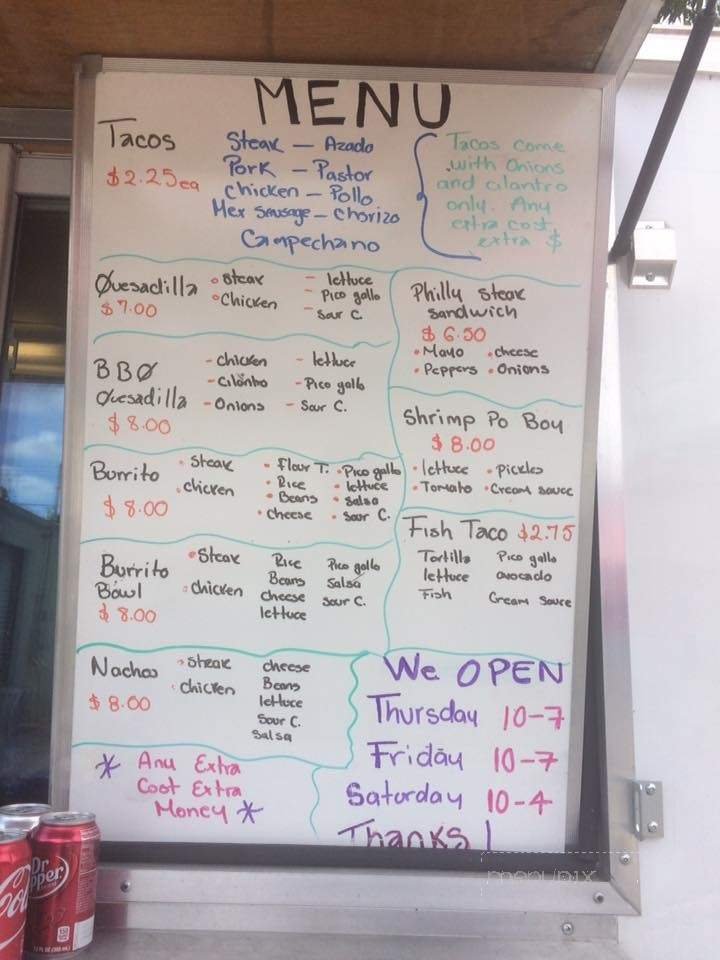 MENU
Tacos
$2.25ea
Steak - Azado
Pork - Pastor
Chicken - Pollo
Mex Sausage - Chorizo
Campechano
Tacos come
with Onions
and cilantro
only. Any
extra cost
extra $
Quesadilla
$7.00
• Steak
• Chicken
- lettuce
- Pico gallo
- Sour C.
Philly Steak
Sandwich
$6.50
• Mayo • cheese
• Peppers • Onions
BBQ
Quesadilla
$8.00
- chicken
- Cilantro
- Onions
- lettuce
- Pico gallo
- Sour C.
Shrimp Po Boy
$8.00
• lettuce • Pickles
• Tomato • Cream sauce
Burrito
$8.00
• Steak
• chicken
• Flour T.
• Rice
• Beans
• cheese
• Pico gallo
• lettuce
• Salsa
• Sour C.
Fish Taco $2.75
Tortilla Pico gallo
lettuce avocado
Fish Cream Sauce
Burrito
Bowl
$8.00
• Steak
• chicken
Rice
Beans
cheese
lettuce
Pico gallo
Salsa
Sour C.
Nachos
$8.00
• Steak
• chicken
cheese
Beans
lettuce
Sour C.
Salsa
We OPEN
Thursday 10-7
Friday 10-7
Saturday 10-4
Thanks!
* Any Extra
Cost Extra
Money *
Dr
Pepper
menupix